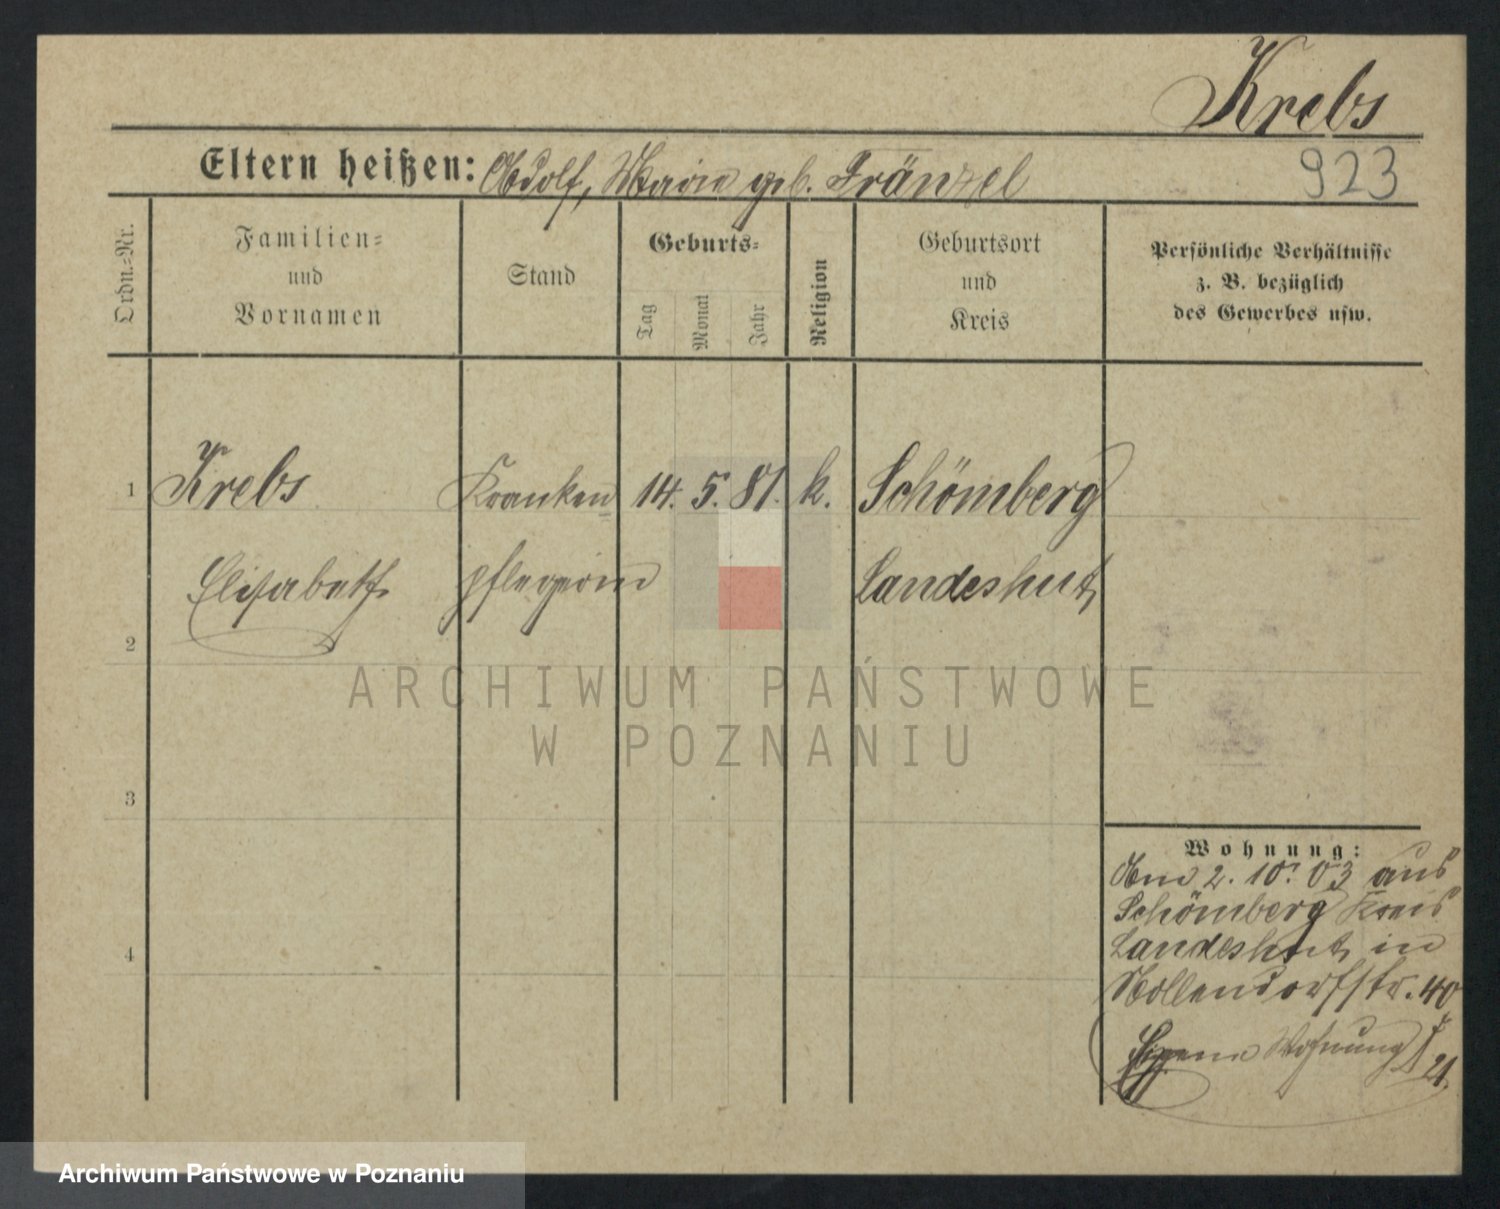 Krebs
Eltern heißen: Adolf, Maria geb. Fränzel
923
Ordn.-Nr.
Familien-
und
Vornamen
Stand
Geburts-
Tag
Monat
Jahr
Religion
Geburtsort
und
Kreis
Persönliche Verhältnisse
z. B. bezüglich
des Gewerbes usw.
1 Krebs Kranken 14. 5. 81. k. Schömberg
Elisabeth pflegerin Landeshut
2
ARCHIWUM PAŃSTWOWE
W POZNANIU
3
4
Wohnung:
Am 2. 10. 03 aus
Schömberg Kreis
Landeshut in
Nollendorfstr. 40
Wohnung
21.
Archiwum Państwowe w Poznaniu